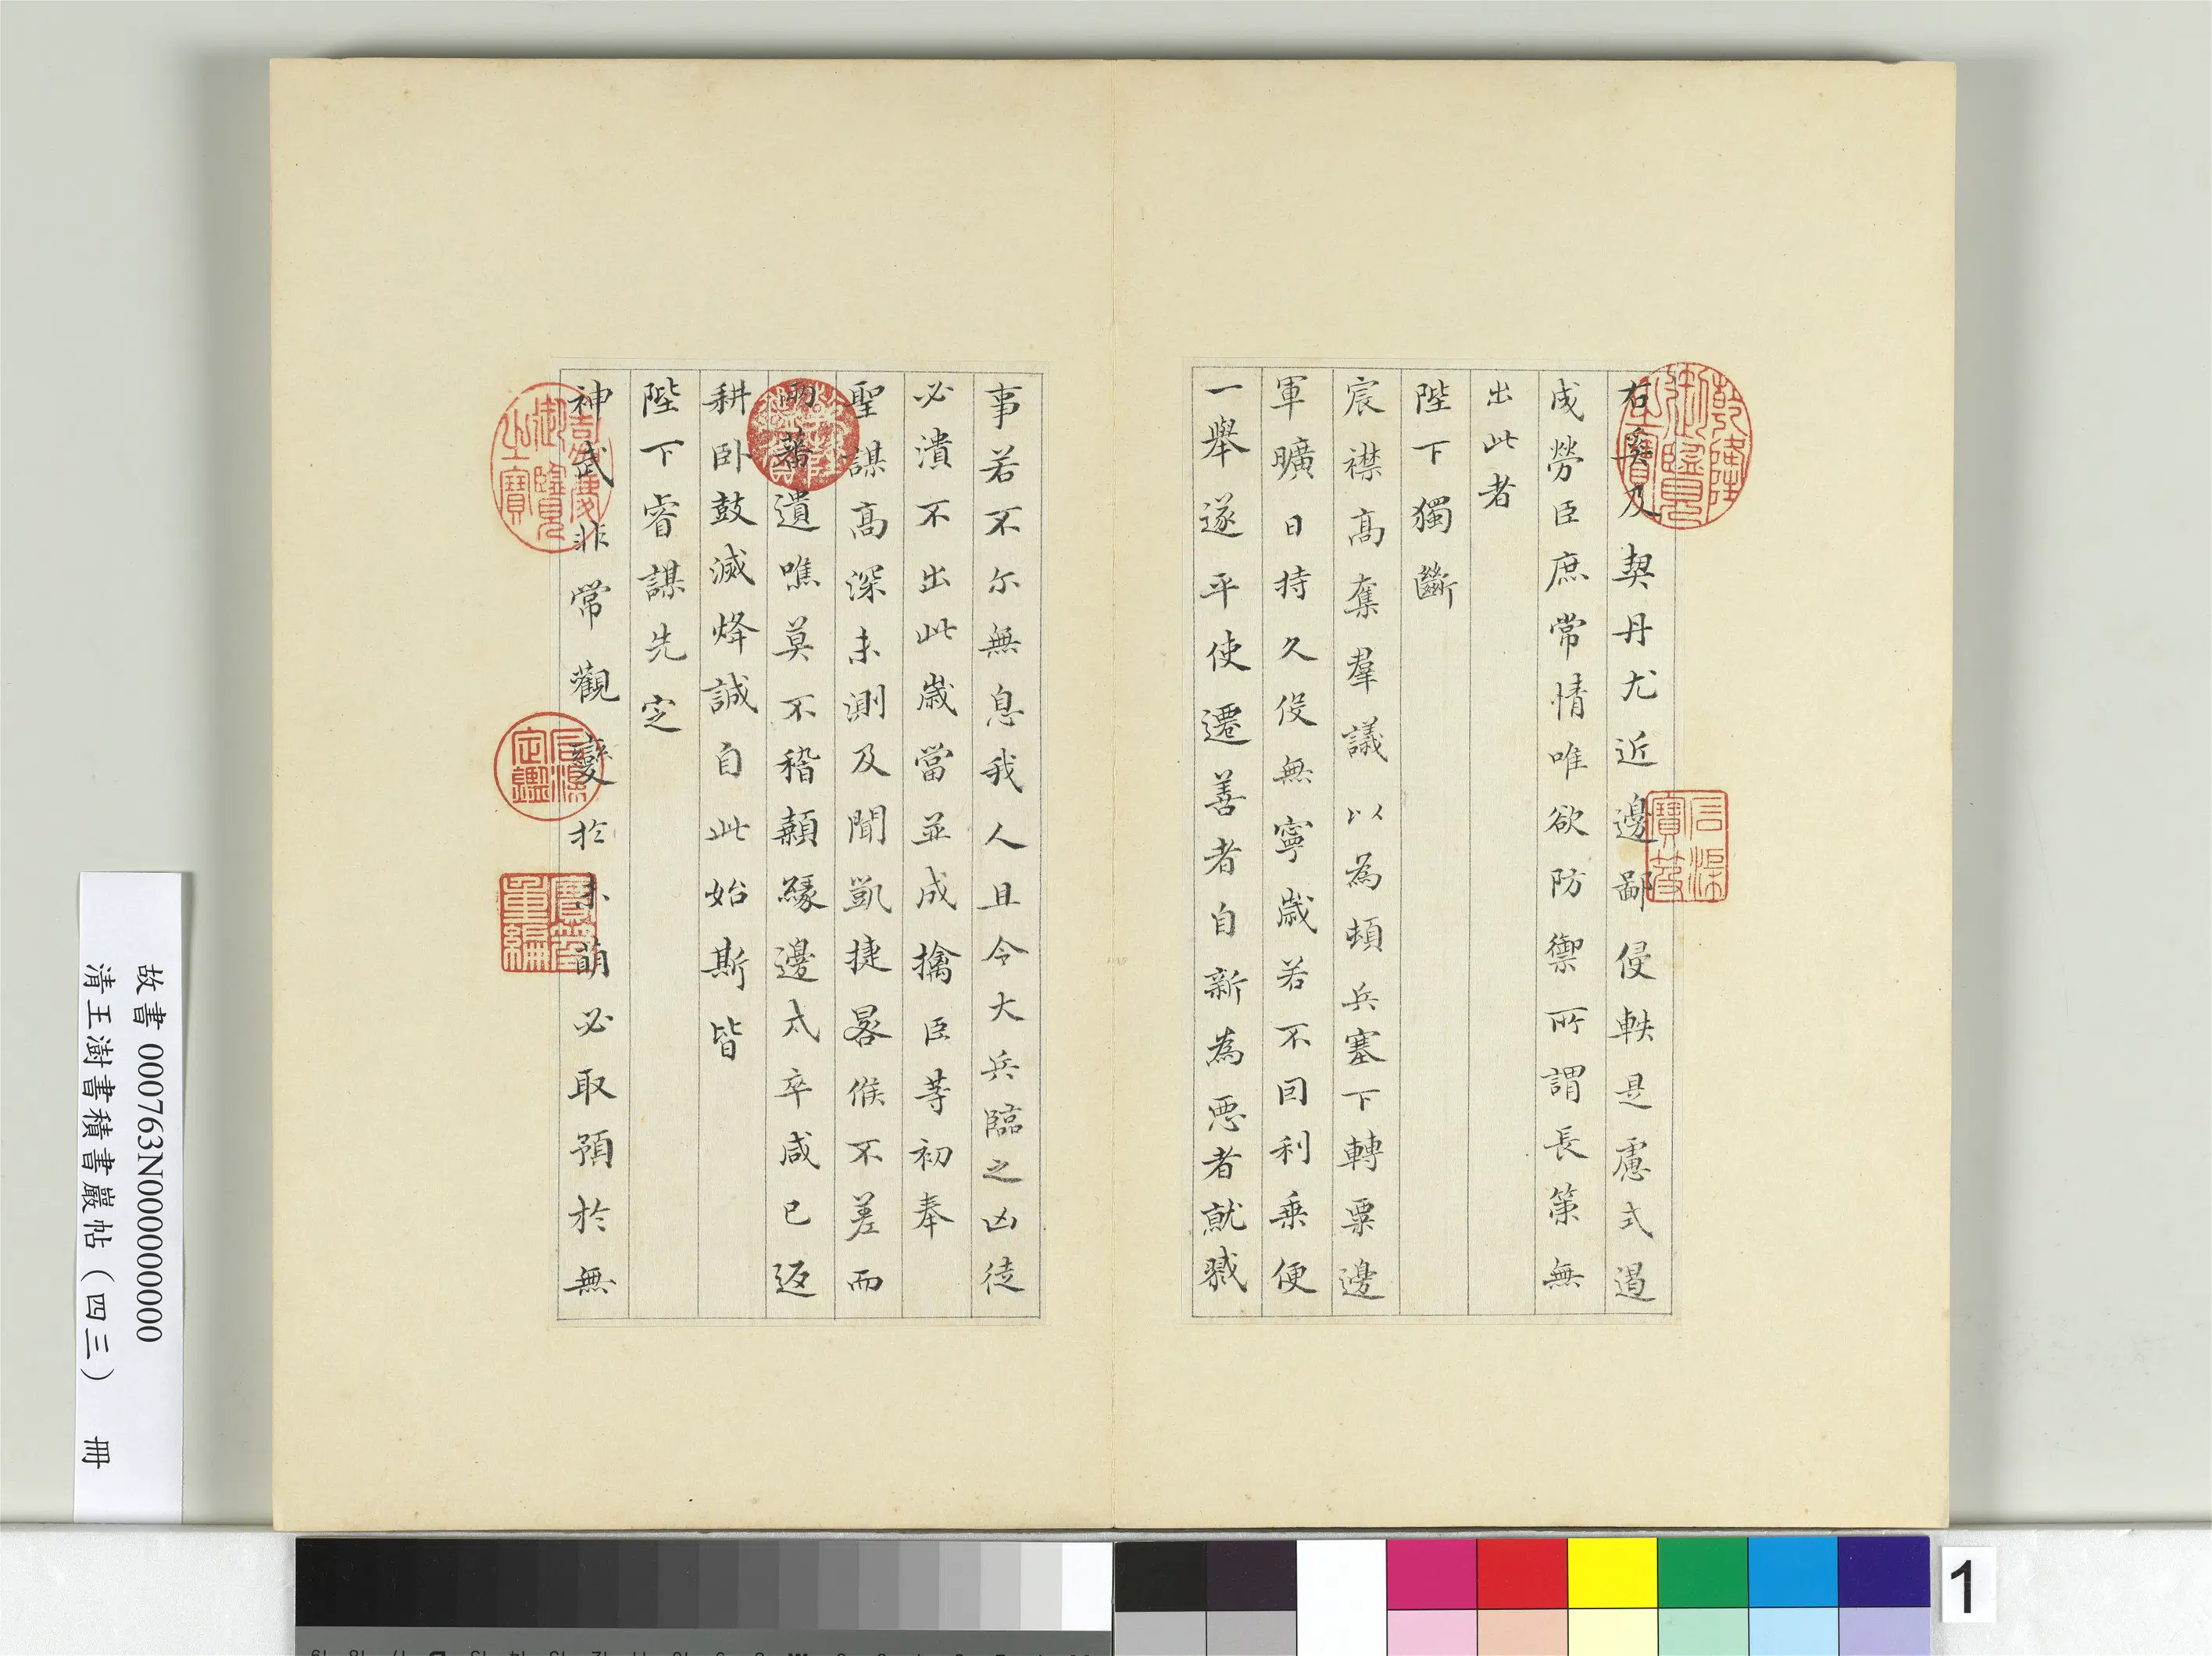 右奚及契丹尤近邊鄙侵軼是慮式遏
戍勞臣庶常情唯欲防禦所謂長策無
出此者
陛下獨斷
宸襟高奪羣議以為頓兵塞下轉粟邊
軍曠日持久役無寧歲若不因利乗便
一舉遂平使遷善者自新為惡者就戮
事若不尒無息我人且令大兵臨之凶徒
必潰不出此歲當並成擒臣等初奉
聖謀高深未測及聞凱捷晷候不差而
兩蕃遺噍莫不稽顙緣邊戍卒咸已返
耕臥鼓滅烽誠自此始斯皆
陛下睿謀先定
神武非常觀變於未萌必取預於無
乾隆御覽之寶
石渠寶笈
嘉慶御覽之寶
石渠定鑑
寶笈重編
故書 000763N000000000
清王澍書積書巖帖（四三） 冊
1